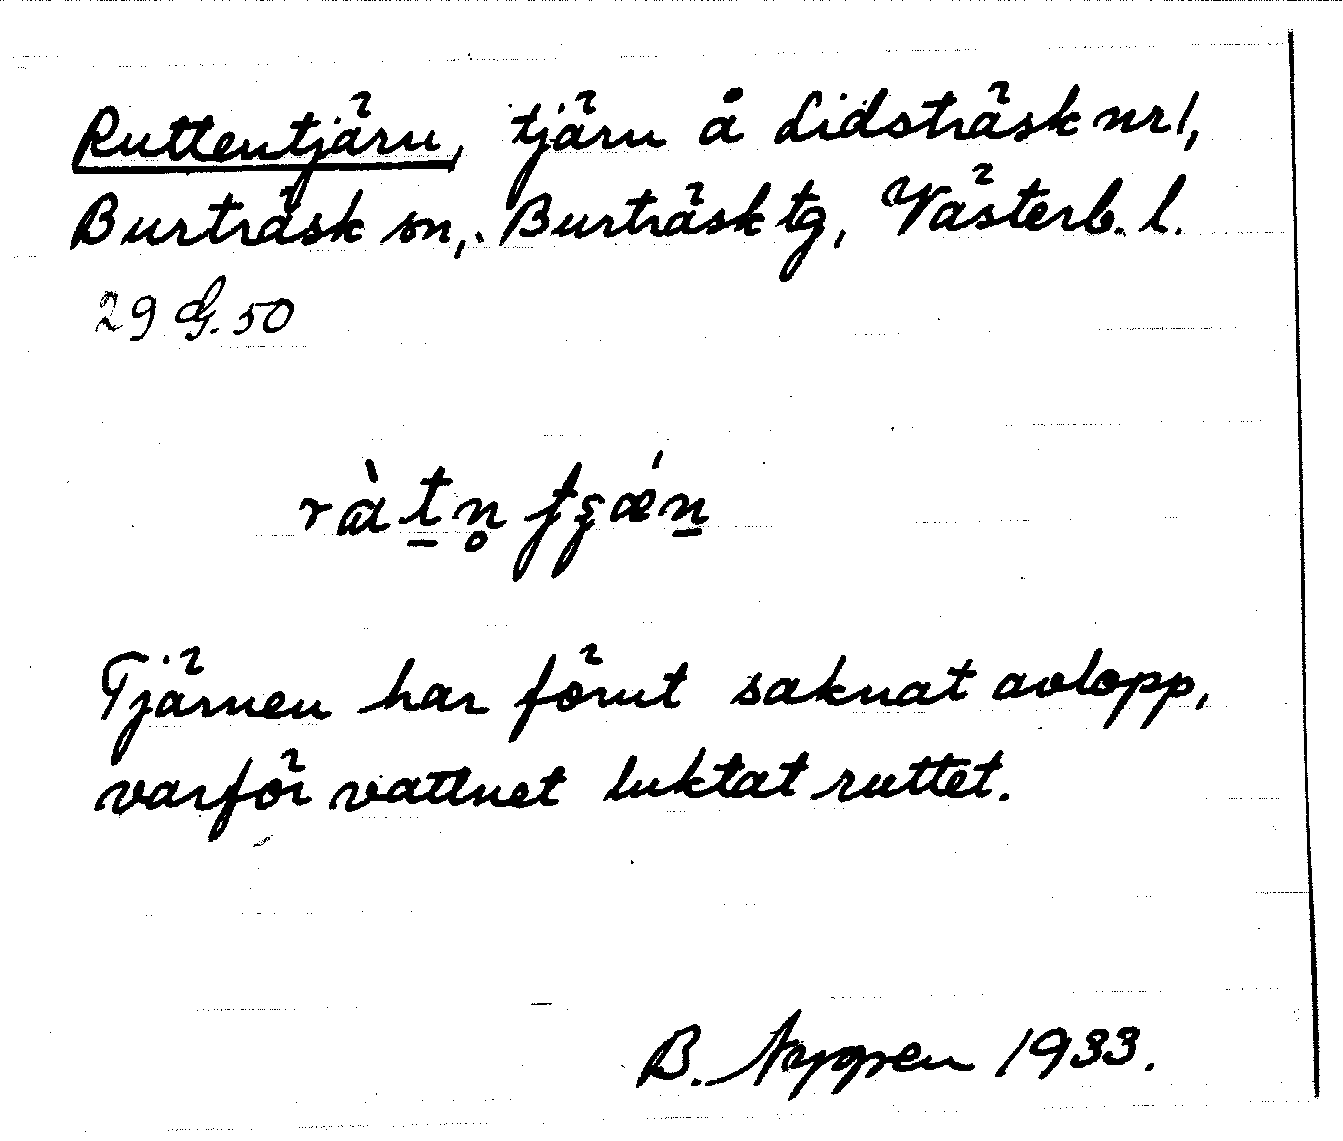 Ruttentjärn, tjärn å Lidsträsk nr 1,
Burträsk sn, Burträsk tg, Västerb. l.
29 G. 50
Tjärnen har förut saknat avlopp,
varför vattnet luktat ruttet.
B. Nygren 1933.